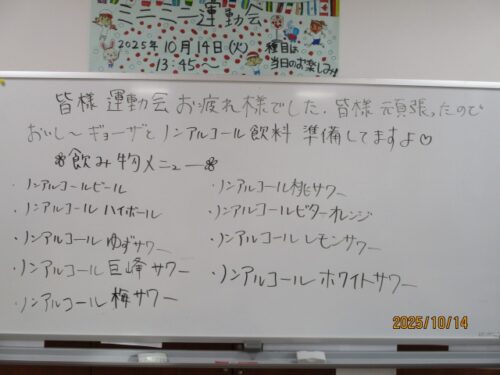 ミニミニ運動会
2025年10月14日(火)
13:45〜
種目は
当日のお楽しみ♪
皆様 運動会 お疲れ様でした。皆様 頑張ったので
おいし〜ギョーザと ノンアルコール飲料 準備してますよ♡
❀飲み物メニュー❀
・ノンアルコールビール
・ノンアルコール ハイボール
・ノンアルコール ゆずサワー
・ノンアルコール 巨峰 サワー
・ノンアルコール 梅サワー
・ノンアルコール桃サワー
・ノンアルコールビターオレンジ
・ノンアルコール レモンサワー
・ノンアルコール ホワイトサワー
2025/10/14